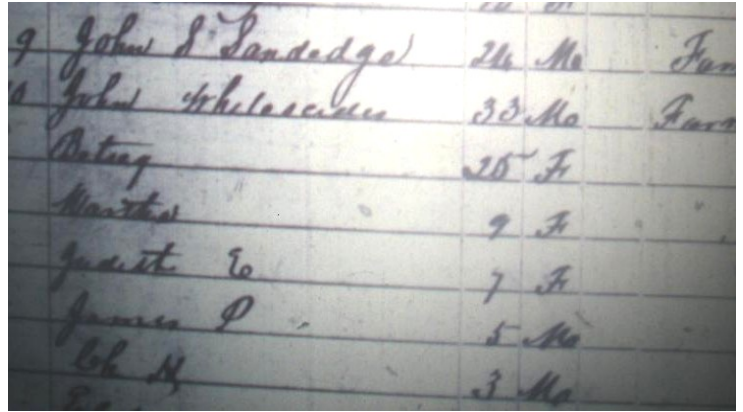 9 John S Sandedge 24 M Far
John Whitesides 33 M Farm
Betsey 25 F
Martha 9 F
Judith E 7 F
James P 5 M
3 M